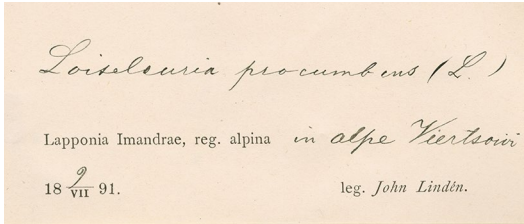 Loiseleuria procumbens (L.)
Lapponia Imandrae, reg. alpina in alpe Viertsoivi
18 9/VII 91. leg. John Lindén.